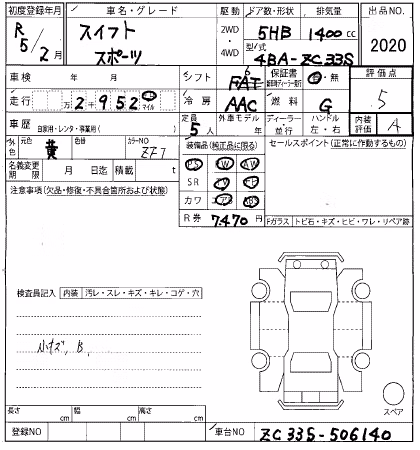 初度登録年月 車名・グレード 駆動 ドア数・形状 排気量 出品NO
R5/2月 スイフト スポーツ 2WD 4WD 5HB 1400cc 2020
型式 4BA-ZC33S
車検 年 月 シフト FAT 6 保証書 有・無 評価点
走行 万2千952 km マイル 冷房 AAC 燃料 G 5
車歴 自家用・レンタ・事業用( ) 定員 5人 外車モデル 年 ディーラー 並行 ハンドル 左・右 内装評価 A
外色 元色 黄 色替 カラーNO ZZ7 装備品(純正品に限る) セールスポイント(正常に作動するもの)
名義変更期限 月 日迄 積載 t PS PW AW
注意事項(欠品・修復・不具合箇所および状態) SR TV
カワ エアB ABS
R券 7470円 Fガラス トビ石・キズ・ヒビ・ワレ・リペア跡
検査員記入 内装 汚レ・スレ・キズ・キレ・コゲ・穴
小キズ、B、
スペア
長さ cm 幅 cm 高さ cm
登録NO 車台NO ZC33S-506140